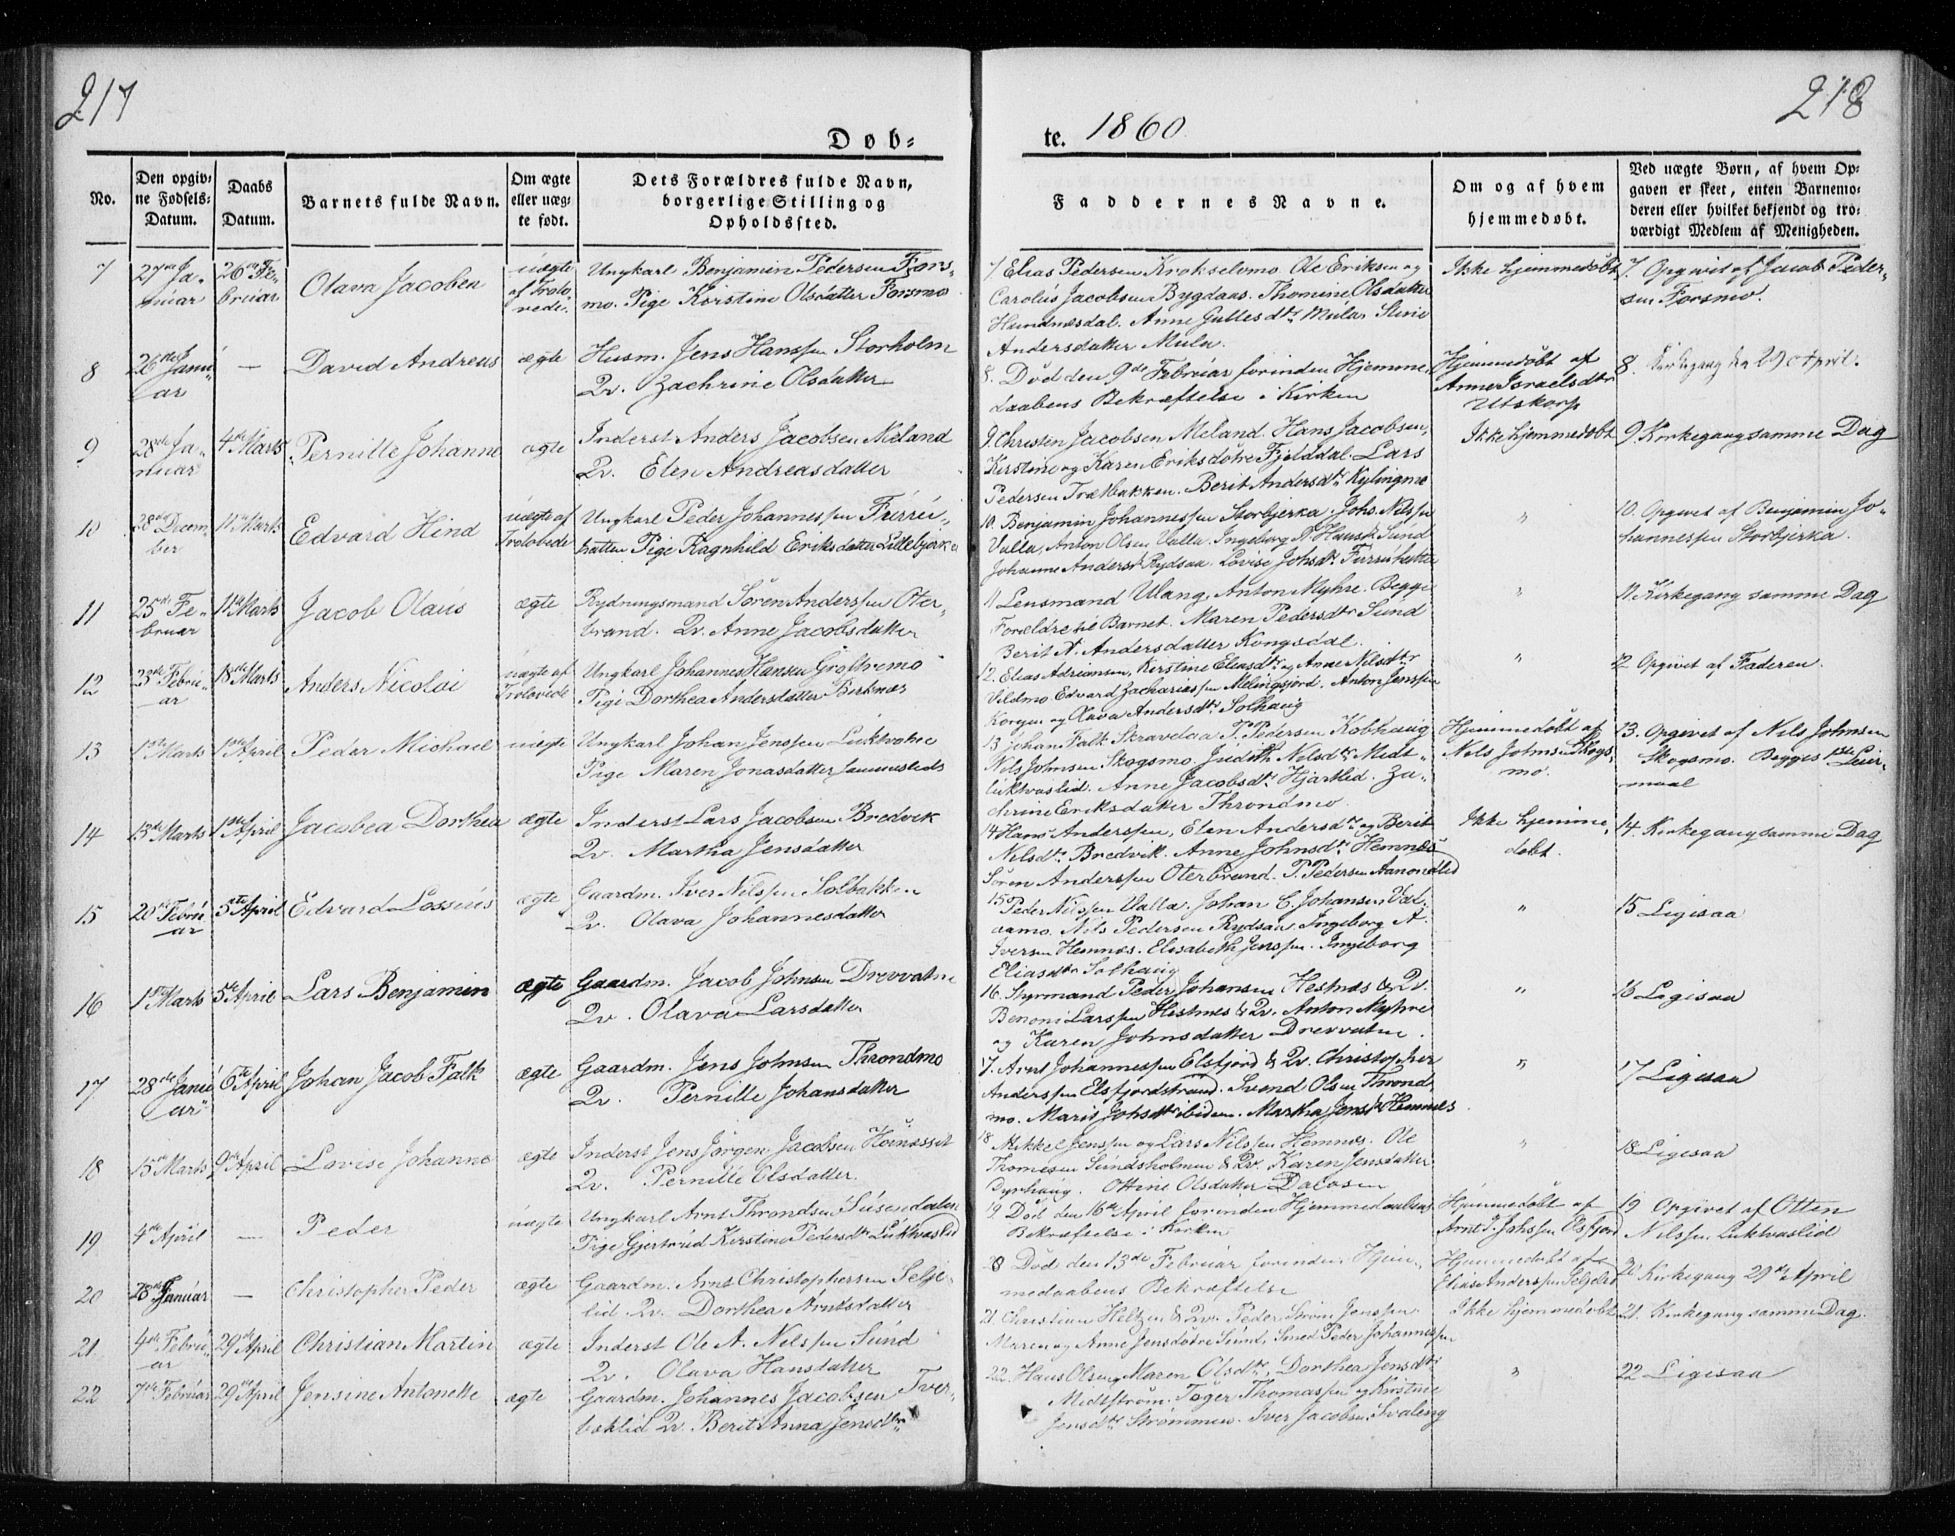 217
218
Døb-
te. 1860
No.
Den opgiv-
ne Fødsels-
Datum.
Daabs
Datum.
Barnets fulde Navn.
Om ægte
eller uæg-
te født.
Dets Forældres fulde Navn,
borgerlige Stilling og
Opholdssted.
Faddernes Navne.
Om og af hvem
hjemmedøbt.
Ved uægte Børn, af hvem Op-
gaven er skeet, enten Barnemo-
deren eller hvilket bekjendt og tro-
værdigt Medlem af Menigheden.
7
27de Ja-
nuar
26de Fe-
bruar
Olava Jacobea
uægte
af Trolo-
vede.
Ungkarl Benjamin Pedersen Fors-
mo. Pige Kirstine Olsdatter Forsmo
7 Elias Pedersen Krokselvmo Ole Eriksen og
Carolus Jacobsen Bygdaas. Thomine Olsdatter
Hundnæsdal. Anne Gullesdtr Mula Stine
Andersdatter Mula.
Ikke hjemmedøbt
7. Opgivet af Jacob Peder-
sen Forsmo.
8
26de Janu-
ar
—
David Andreas
ægte
Husm. Jens Hanssen Storholm
Qv. Zachrine Olsdatter
8. Død den 9de Februar forinden Hjemme
daabens Bekræftelse i Kirken
Hjemmedøbt af
Anne Israelsdtr
Utskorp
8. Kirkegang den 29 April.
9
28de Ja-
nuar
4de Marts
Pernille Johanne
ægte
Inderst Anders Jacobsen Meland
Qv. Elen Andreasdatter
9. Christen Jacobsen Meland. Hans Jacobsen,
Kirstine og Karen Eriksdøtre Fjelddal. Lars
Pedersen Træthakken. Berit Andersdtr Kylingmo
Ikke hjemmedøbt
9. Kirkegang samme Dag
10
28de Decem-
ber
11te Marts
Edvard Hind
uægte af
Trolovede
Ungkarl Peder Johannessen Furru-
hatten Pige Ragnhild Eriksdatter Lillebjerka
10. Benjamin Johannessen Storbjerka. Johs. Nilssen
Valla, Anton Olsen Valla. Ingeborg A Hansdr Sund
Johanne Andersdr Rydsaa. Lovise Johsdr Furruhatten
"
10. Opgivet af Benjamin Jo-
hannessen Storbjerka.
11
25de Fe-
bruar
11te Marts
Jacob Olaus
ægte
Rydningsmand Søren Anderssen Oter-
brand. Qv. Anne Jacobsdatter
11 Lensmand Ulang, Anton Myhre. Begge
Forældre til Barnet. Maren Pedersdtr Sund
Berit A. Andersdatter Kongsdal.
"
11. Kirkegang samme Dag
12
23de Febru-
ar
18de Marts
Anders Nicolai
uægte af
Trolovede
Ungkarl Johannes Hansen
Pige Dorthea Andersdatter Birknæs
12. Elias Adriansen, Kirstine Eliasdtr og Anne Nilsdtr
Vildmo Edvard Zachariassen. Anton Jenssen
Korgen og Olava Andersdtr Solhaug
"
12 Opgivet af Faderen.
13
1ste Marts
1ste April
Peder Michael
uægte
Ungkarl Johan Jenssen Lukvatne
Pige Maren Jonasdatter sammesteds
13 Johan Falk Stravelaa P. Pedersen Kobhaug
Nils Johnsen Skogsmo Judith Nilsdtr Midt-
lukvaslid. Anne Jacobsdtr Hjartlid. Za-
chrine Eriksdatter Throndmo
Hjemmedøbt af
Nils Johnsen Skogs-
mo.
13. Opgivet af Nils Johnsen
Skogsmo. Begges 1ste Leier-
maal
14
15de Marts
1ste April
Jacobea Dorthea
ægte
Inderst Lars Jacobsen Bredvik
Qv. Martha Jensdatter
14 Hans Anderssen, Elen Andersdtr og Berit
Nilsdtr Bredvik. Anne Johnsdtr Hemnæs
Søren Anderssen Oterbrand. P. Pedersen Aanonlid
Ikke hjemme-
døbt.
14. Kirkegang samme Dag
15
20de Febru-
ar
5te April
Edvard Lossius
ægte
Gaardm. Iver Nilssen Solbakken
Qv. Olava Johannesdatter
15 Peder Nilssen Valla. Johan C. Johansen Val-
aamo. Nils Pedersen Rydsaa, Ingeborg A.
Iversen Hemnæs. Elisabeth Jenssen. Ingeborg
Eliasdtr Solhaug
"
15 Ligesaa
16
1ste Marts
5te April
Lars Benjamin
ægte
Gaardm. Jacob Johnsen Drevvatne
Qv. Olava Larsdatter
16. Styrmand Peder Johansen Hestnæs & Qv.
Benoni Larssen Hestnes & Qv. Anton Myhre
og Karen Johnsdatter Drevvatne.
"
16 Ligesaa
17
28de Janu-
ar
6te April
Johan Jacob Falk
ægte
Gaardm. Jens Johnsen Throndmo
Qv. Pernille Johansdatter
17. Arnt Johannessen Elsfjord & Qv. Christopher
Anderssen Elsfjordstrand. Svend Olsen Thrond
mo. Marit Johsdtr ibidem. Martha Jensdr Hemnes
"
17 Ligesaa
18
15de Marts
9de April
Lovise Johanne
ægte
Inderst Jens Jørgen Jacobsen
Qv. Pernille Olsdatter.
18 Mikkel Jenssen og Lars Nilssen Hemnæs. Ole
Thomesen Sundsholmen & Qv. Karen Jensdatter
Dyrhaug. Ottine Olsdatter Dalosen
"
18 Ligesaa
19
4de April
—
Peder
uægte
Ungkarl Arnt Throndsen Susendalen
Pige Gjertrud Kirstine Pedersdtr Lukvaslid
19 Død den 16de April forinden Hjemmedaabens
Bekræftelse i Kirken
Hjemmedøbt af
Arnt J. Johssen Elsfjord
19 Opgivet af Otten
Nilssen Lukvaslid
20
28de Januar
—
Christopher Peder
ægte
Gaardm. Arnt Christophersen Selje-
lid Qv. Dorthea Arntsdatter
20 Død den 13de Februar forinden Hjem-
medaabens Bekræftelse
Hjemmedøbt af
Elias Anderssen Seljelid
20 Kirkegang 29de April
21
4de Febru-
ar
29de April
Christian Martin
ægte
Inderst Ole A. Nilssen Sund
Qv. Olava Hansdatter
21. Christian Heltzen & Qv. Peder Jenssen
Maren og Anne Jensdøtre Sund, Smed Peder Johannessen
Ikke hjemmedøbt
21. Kirkegang samme Dag.
22
7de Februar
29de April
Jensine Antonette
ægte
Gaardm. Johannes Jacobsen Tver-
bæklid Qv. Berit Anna Jensdtr
22. Hans Olsen, Maren Olsdtr, Dorthea Jensdtr
Midtstrøm. Tøger Thomassen og Kirstine
Jensdtr Strømmen. Iver Jacobsen Svaleng
"
22 Ligesaa